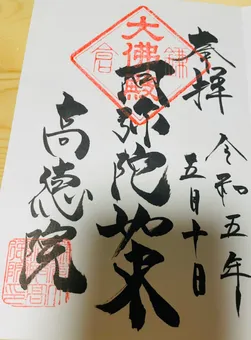 奉拝
令和五年
五月十日
大佛殿
鎌倉
阿弥陀如来
高徳院